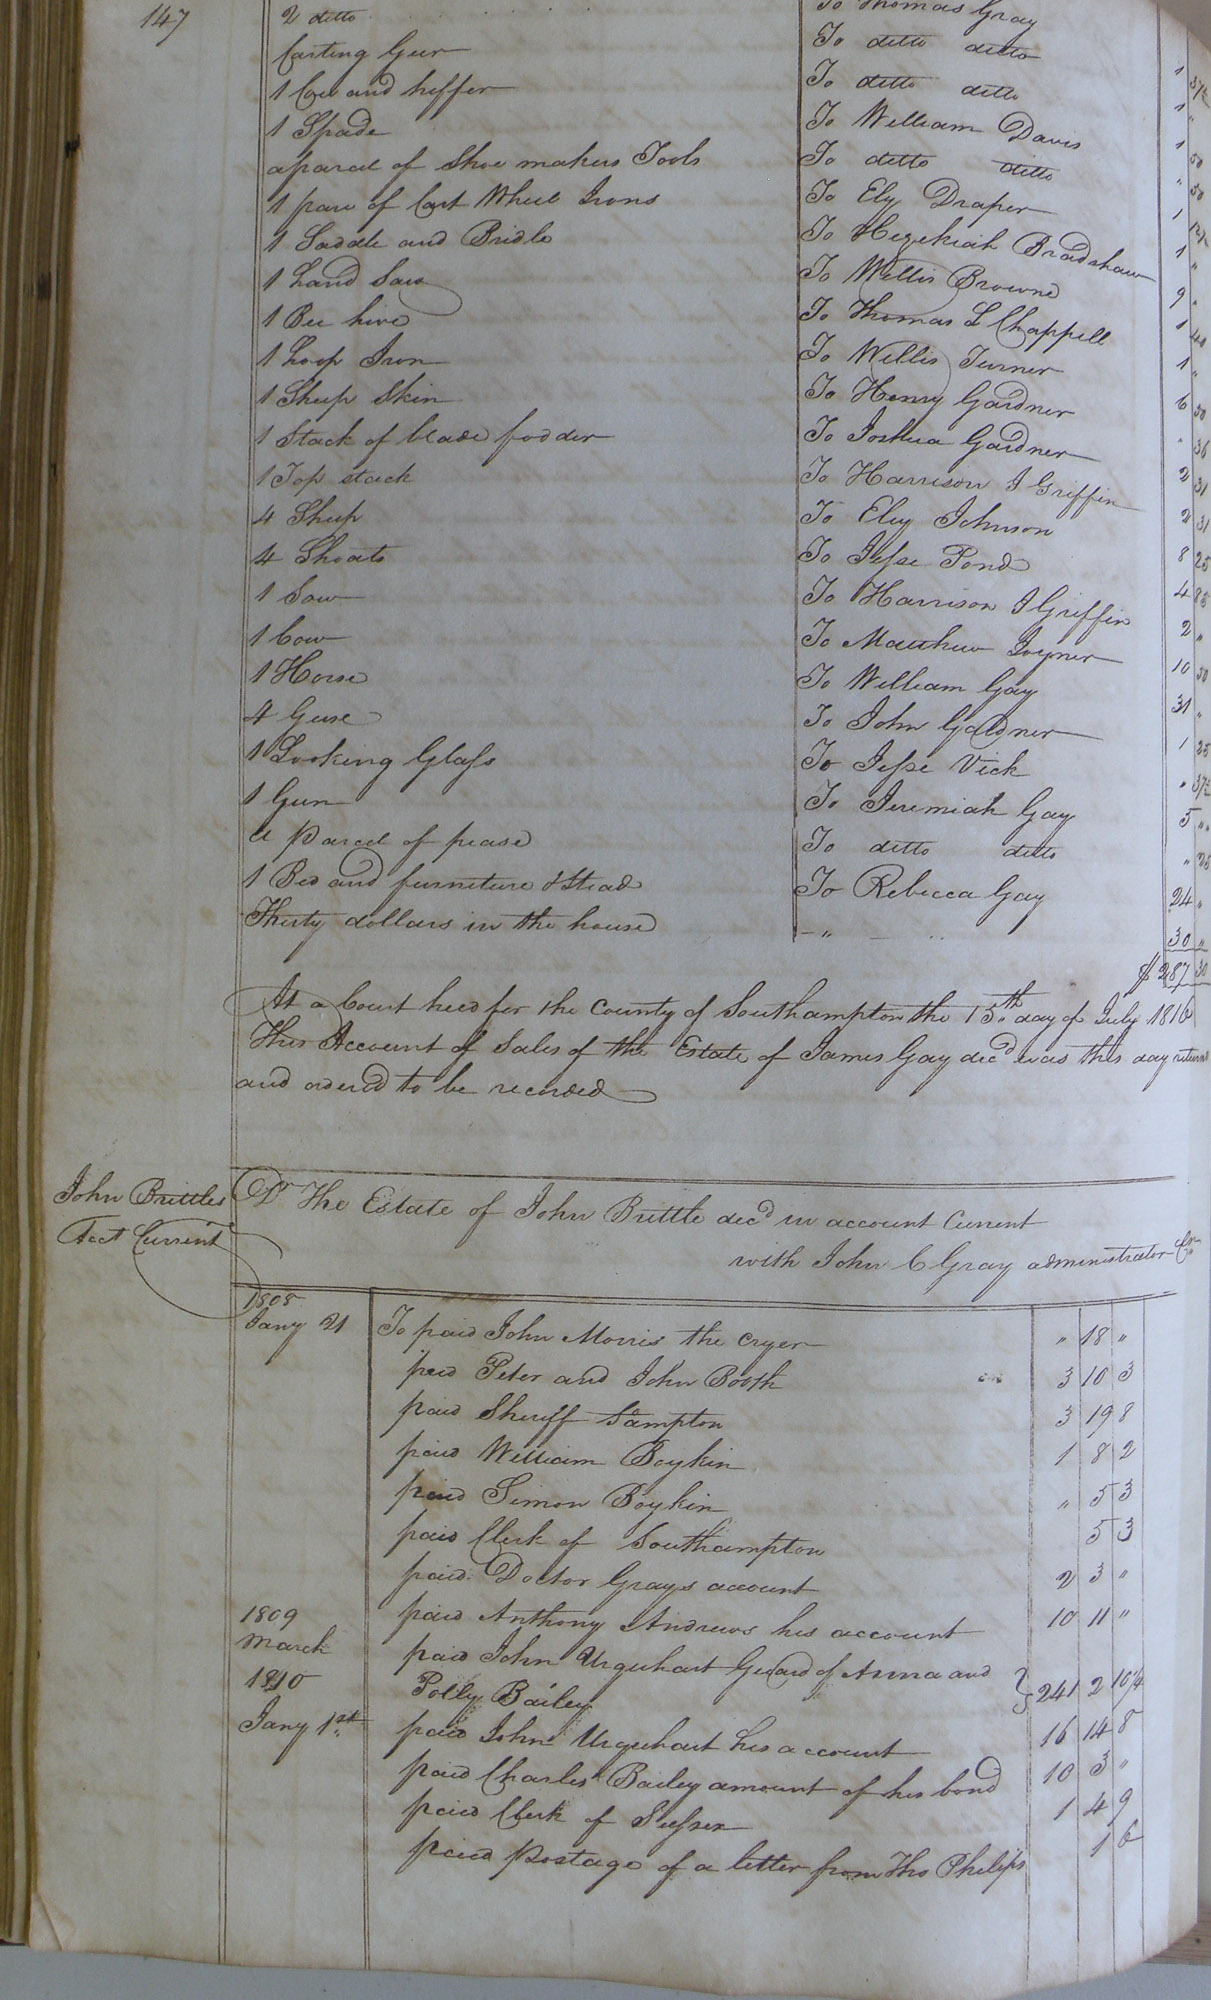 147
2 ditto To Thomas Gray
Carting Geer To ditto ditto
1 Cow and heffer To ditto ditto 1 37½
1 Spade To William Davis 1 "
a parcel of Shoe makers Tools To ditto ditto 1 50
1 pare of Cart Wheel Irons To Ely Draper " 50
1 Saddle and Bridle To Hezekiah Bradshaw 1 12½
1 hand Saw To Willis Browne 1 "
1 Bee hive To Thomas L Chappell 9 "
1 hoop Iron To Willis Turner 1 40
1 Sheep Skin To Henry Gardner 1 "
1 Stack of blade fodder To Joshua Gardner 6 50
1 Top stack To Harrison J Griffin " 36
4 Sheep To Eley Johnson 2 31
4 Shoats To Jesse Pond 2 31
1 Sow To Harrison J Griffin 8 25
1 Cow To Matthew Joyner 4 85
1 Horse To William Gay 2 "
4 Geese To John Gardner 10 50
1 Looking Glass To Jesse Vick 31 "
1 Gun To Jeremiah Gay 1 25
a Parcel of pease To ditto ditto " 37½
1 Bed and furniture & Stead To Rebecca Gay 5 "
Thirty dollars in the house - " - " " 25
24 "
30 "
$ 287 30
At a Court held for the County of Southampton the 15th day of July 1816
This Account of Sales of the Estate of James Gay decd was this day returned
and ordered to be recorded
John Brittles
Acct Current
Dr The Estate of John Brittle decd in account Current
with John C Gray administrator Cr
1808
Jany 21 To paid John Morris the cryer " 18 "
paid Peter and John Booth 3 10 3
paid Sheriff Sampton 3 19 8
paid William Boykin 1 8 2
paid Simon Boykin " 5 3
paid Clerk of Southampton 5 3
paid Doctor Grays account 2 3 "
1809 paid Anthony Andrews his account 10 11 "
March paid John Urquhart Guard of Anna and
1810 Polly Bailey } 241 2 10¼
Jany 1st paid John Urquhart his account 16 14 8
paid Charles Bailey amount of his bond 10 3 "
paid Clerk of Sussex 1 4 9
paid Postage of a letter from Tho Philips 1 6